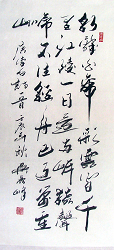 朝辭白帝彩雲間千
里江陵一日還兩岸猿聲
啼不住輕舟已過萬重
山
唐李白詩一首